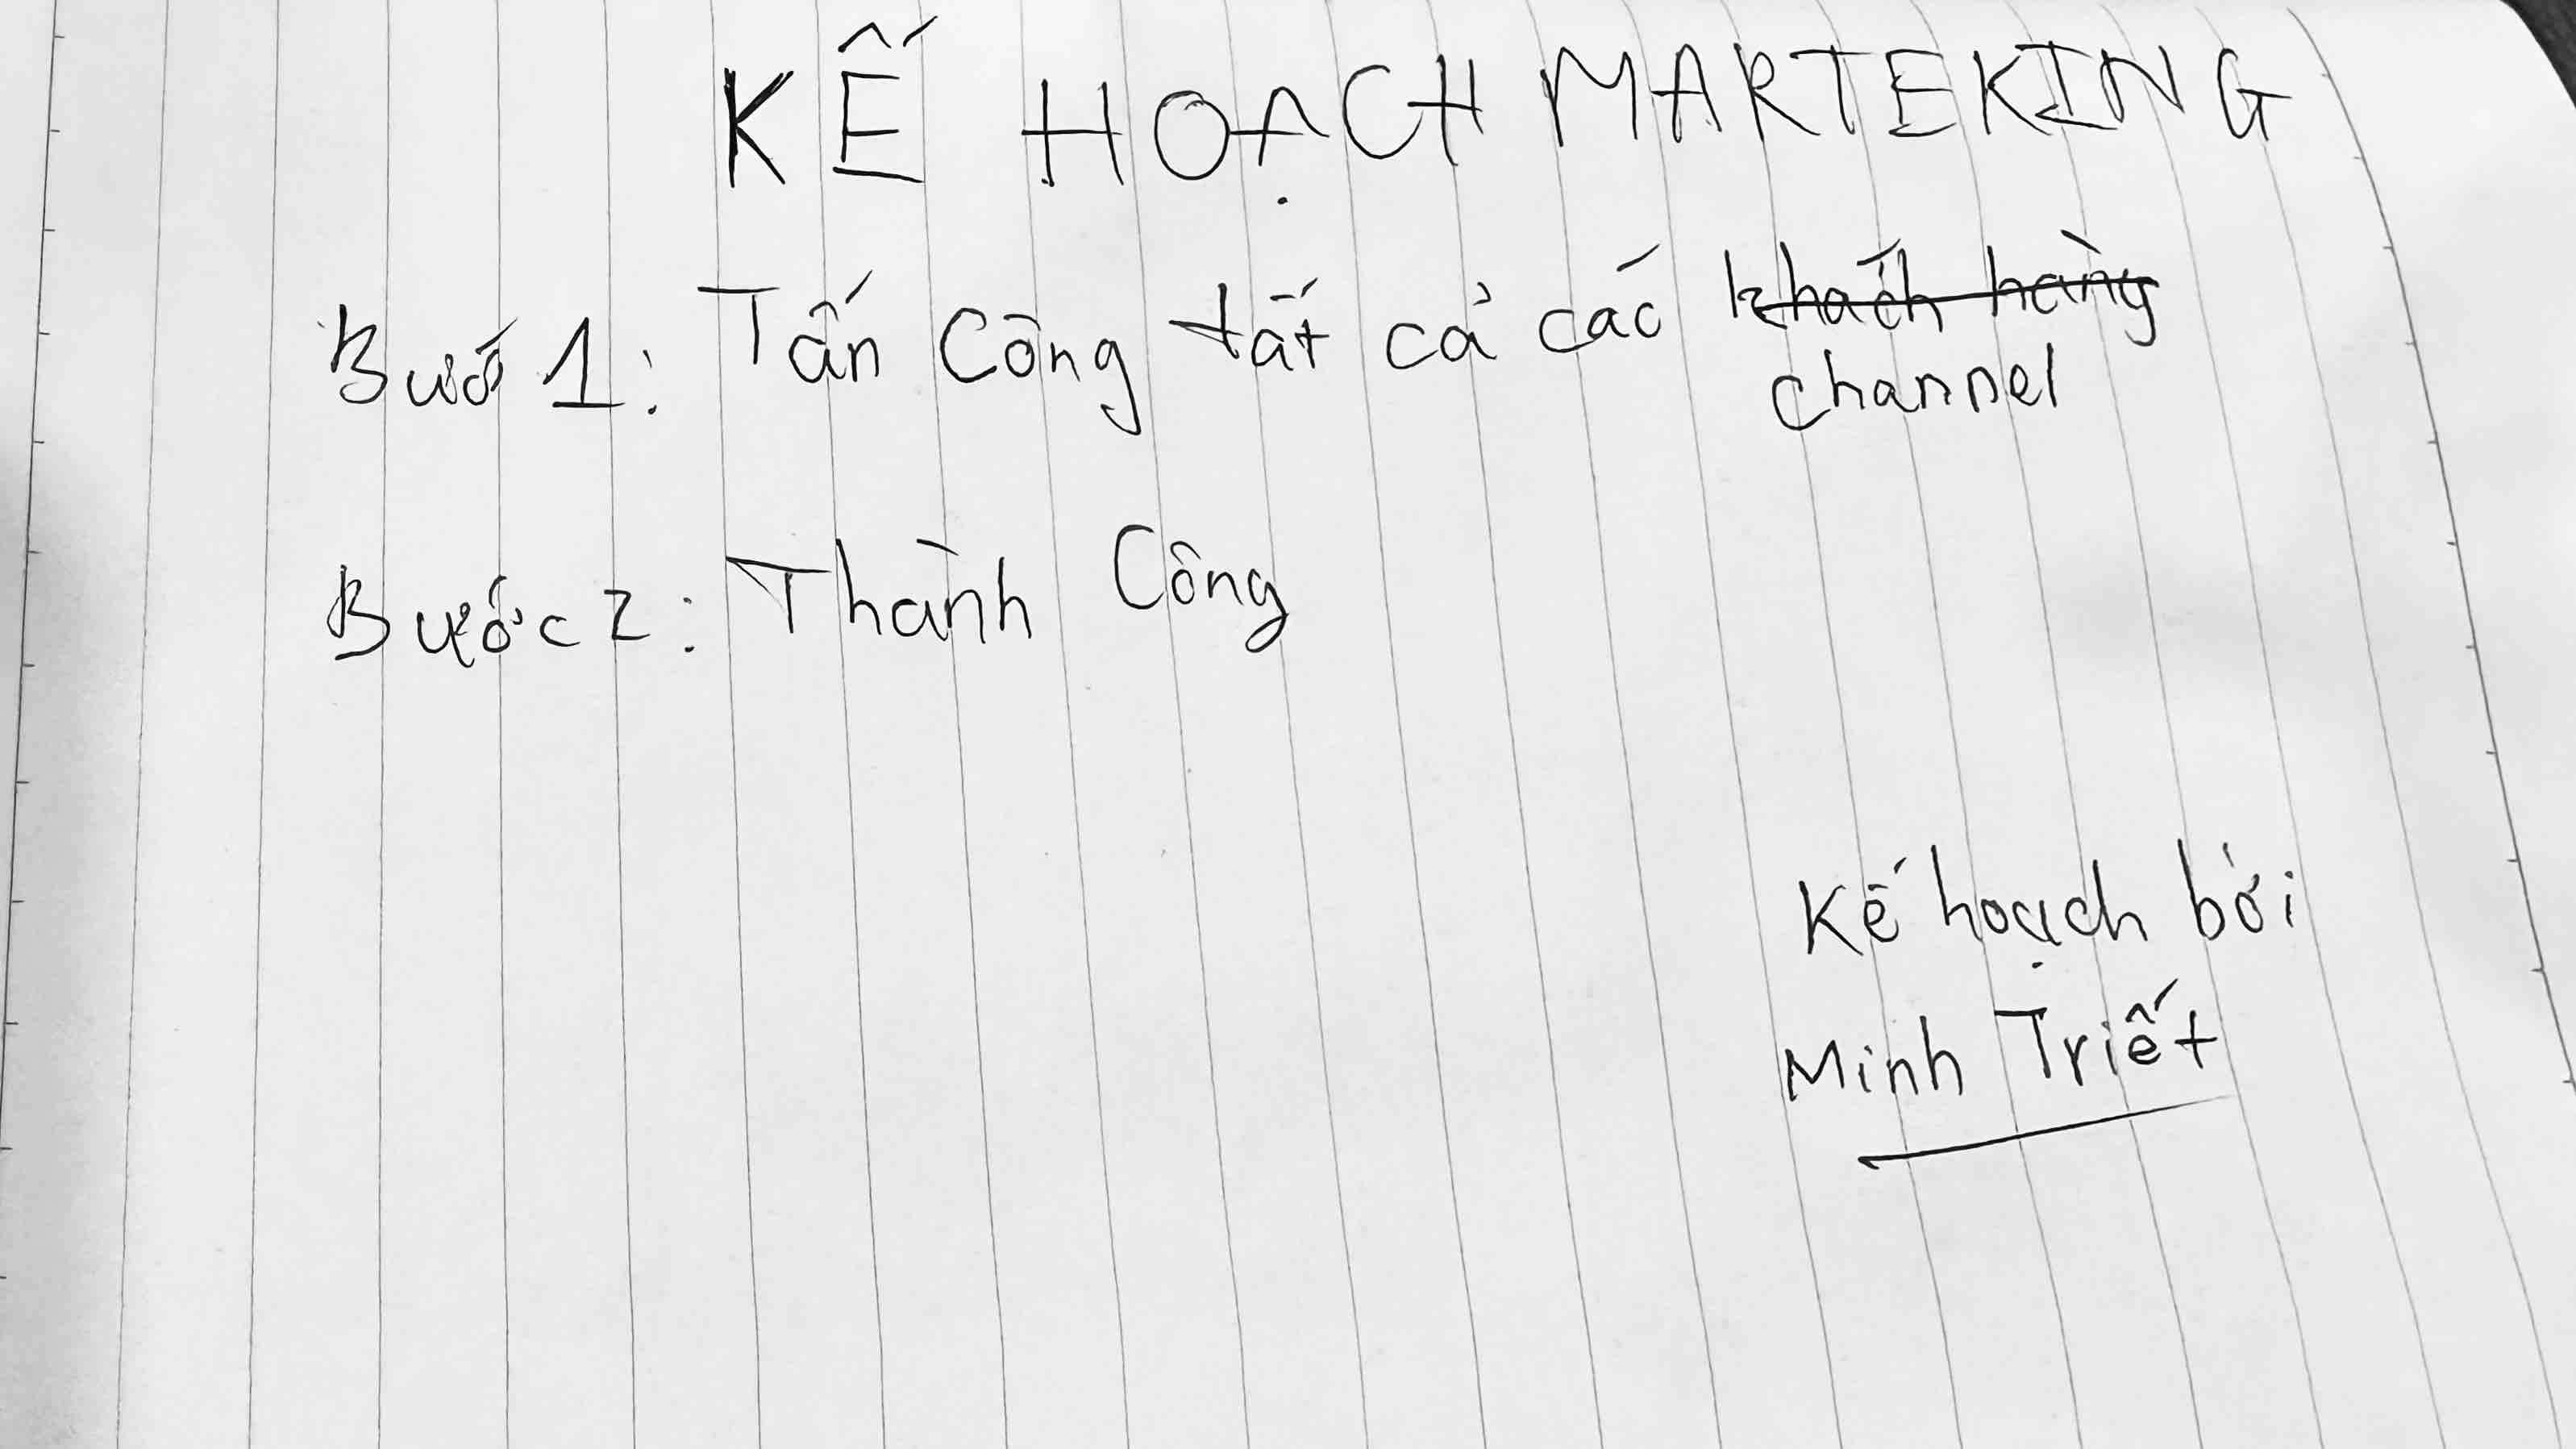 KẾ HOẠCH MARTEKING
Bướ 1: Tấn Công tất cả các khách hàng
channel
Bước 2: Thành Công
Kế hoạch bởi
Minh Triết